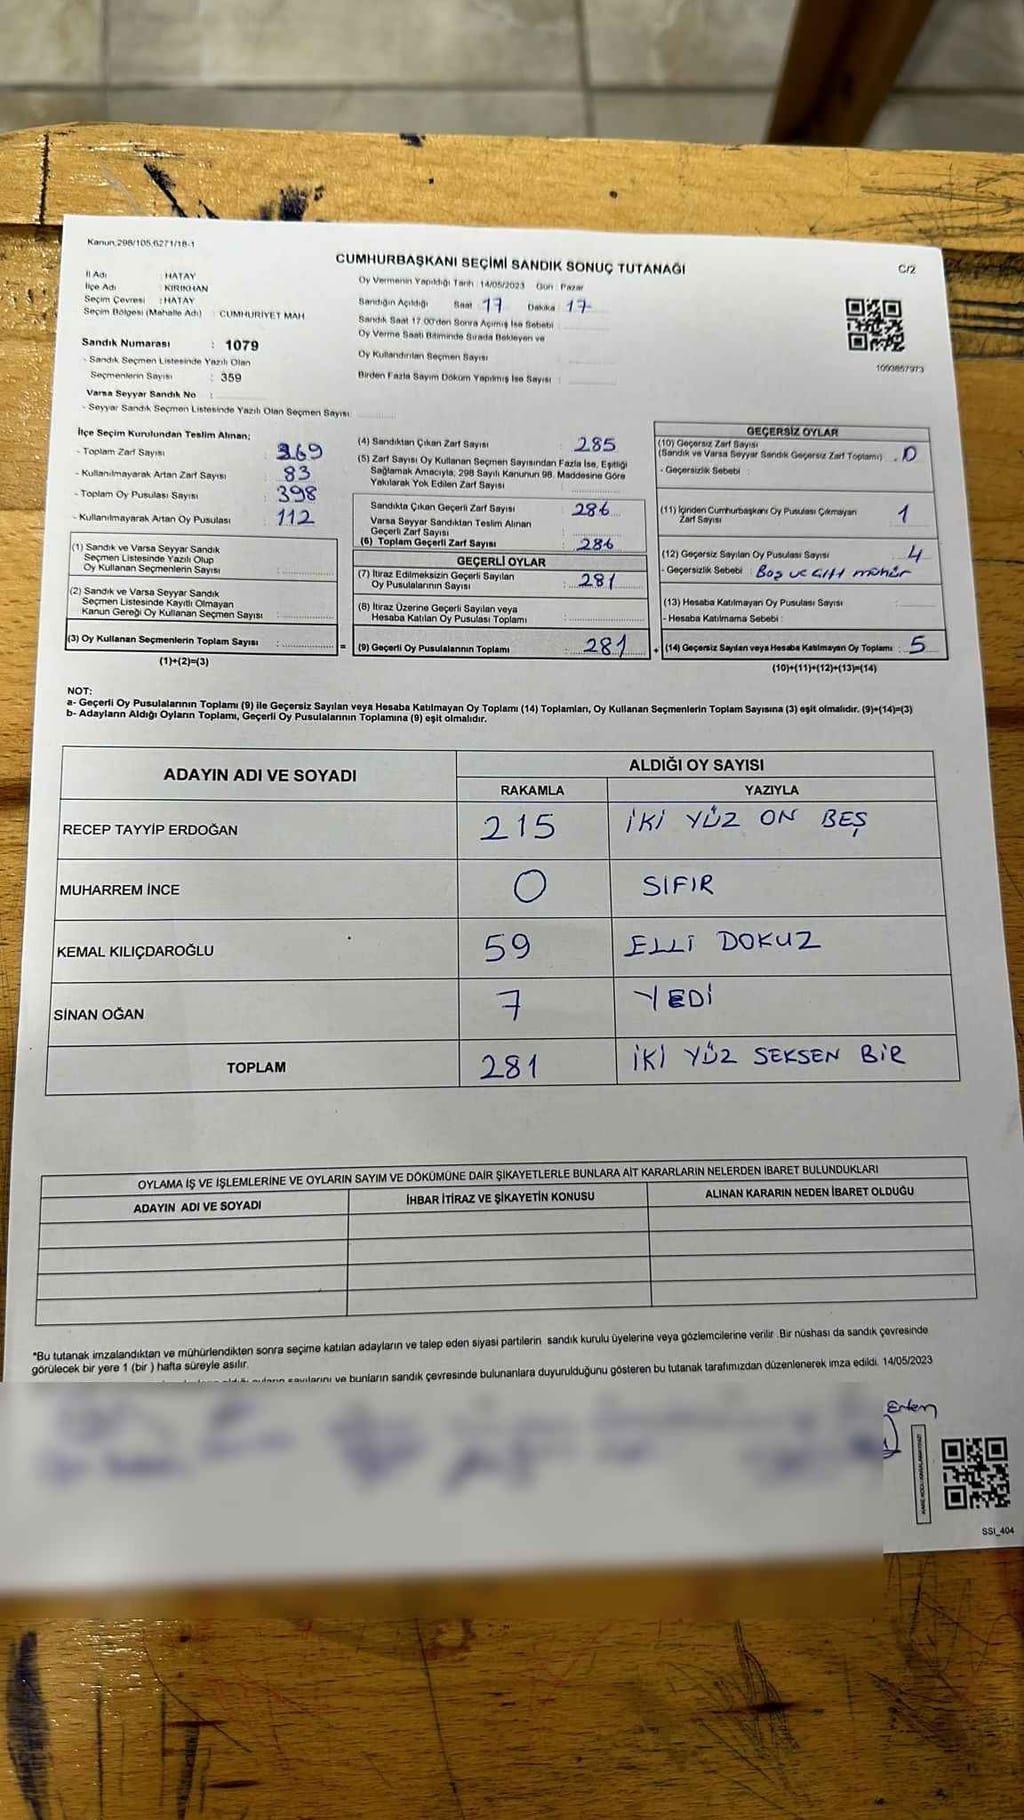 Kanun,298/105,6271/18-1
CUMHURBAŞKANI SEÇİMİ SANDIK SONUÇ TUTANAĞI
C/2
İl Adı : HATAY
İlçe Adı : KIRIKHAN
Seçim Çevresi : HATAY
Seçim Bölgesi (Mahalle Adı) : CUMHURİYET MAH.
Oy Vermenin Yapıldığı Tarih : 14/05/2023 Gün : Pazar
Sandığın Açıldığı Saat : 17 Dakika : 17
Sandık Saat 17.00'den Sonra Açılmış İse Sebebi :
Oy Verme Saati Bitiminde Sırada Bekleyen ve
Oy Kullandırılan Seçmen Sayısı
Birden Fazla Sayım Döküm Yapılmış İse Sayısı :
1093857973
Sandık Numarası : 1079
- Sandık Seçmen Listesinde Yazılı Olan
Seçmenlerin Sayısı : 359
Varsa Seyyar Sandık No :
- Seyyar Sandık Seçmen Listesinde Yazılı Olan Seçmen Sayısı:
İlçe Seçim Kurulundan Teslim Alınan;
- Toplam Zarf Sayısı : 369
- Kullanılmayarak Artan Zarf Sayısı : 83
- Toplam Oy Pusulası Sayısı : 398
- Kullanılmayarak Artan Oy Pusulası : 112
(1) Sandık ve Varsa Seyyar Sandık
Seçmen Listesinde Yazılı Olup
Oy Kullanan Seçmenlerin Sayısı :
(2) Sandık ve Varsa Seyyar Sandık
Seçmen Listesinde Kayıtlı Olmayan
Kanun Gereği Oy Kullanan Seçmen Sayısı :
(3) Oy Kullanan Seçmenlerin Toplam Sayısı : =
(1)+(2)=(3)
(4) Sandıktan Çıkan Zarf Sayısı : 285
(5) Zarf Sayısı Oy Kullanan Seçmen Sayısından Fazla İse, Eşitliği
Sağlamak Amacıyla, 298 Sayılı Kanunun 98. Maddesine Göre
Yakılarak Yok Edilen Zarf Sayısı :
Sandıkta Çıkan Geçerli Zarf Sayısı : 286
Varsa Seyyar Sandıktan Teslim Alınan
Geçerli Zarf Sayısı :
(6) Toplam Geçerli Zarf Sayısı : 286
GEÇERLİ OYLAR
(7) İtiraz Edilmeksizin Geçerli Sayılan
Oy Pusulalarının Sayısı : 281
(8) İtiraz Üzerine Geçerli Sayılan veya
Hesaba Katılan Oy Pusulası Toplamı :
(9) Geçerli Oy Pusulalarının Toplamı : 281 +
GEÇERSİZ OYLAR
(10) Geçersiz Zarf Sayısı
(Sandık ve Varsa Seyyar Sandık Geçersiz Zarf Toplamı) : 0
- Geçersizlik Sebebi :
(11) İçinden Cumhurbaşkanı Oy Pusulası Çıkmayan
Zarf Sayısı : 1
(12) Geçersiz Sayılan Oy Pusulası Sayısı : 4
- Geçersizlik Sebebi : Boş ve çift mühür
(13) Hesaba Katılmayan Oy Pusulası Sayısı :
- Hesaba Katılmama Sebebi :
(14) Geçersiz Sayılan veya Hesaba Katılmayan Oy Toplamı : 5
(10)+(11)+(12)+(13)=(14)
NOT:
a- Geçerli Oy Pusulalarının Toplamı (9) ile Geçersiz Sayılan veya Hesaba Katılmayan Oy Toplamı (14) Toplamları, Oy Kullanan Seçmenlerin Toplam Sayısına (3) eşit olmalıdır. (9)+(14)=(3)
b- Adayların Aldığı Oyların Toplamı, Geçerli Oy Pusulalarının Toplamına (9) eşit olmalıdır.
ADAYIN ADI VE SOYADI ALDIĞI OY SAYISI
RAKAMLA YAZIYLA
RECEP TAYYİP ERDOĞAN 215 İKİ YÜZ ON BEŞ
MUHARREM İNCE 0 SIFIR
KEMAL KILIÇDAROĞLU 59 ELLİ DOKUZ
SİNAN OĞAN 7 YEDİ
TOPLAM 281 İKİ YÜZ SEKSEN BİR
OYLAMA İŞ VE İŞLEMLERİNE VE OYLARIN SAYIM VE DÖKÜMÜNE DAİR ŞİKAYETLERLE BUNLARA AİT KARARLARIN NELERDEN İBARET BULUNDUKLARI
ADAYIN ADI VE SOYADI İHBAR İTİRAZ VE ŞİKAYETİN KONUSU ALINAN KARARIN NEDEN İBARET OLDUĞU
*Bu tutanak imzalandıktan ve mühürlendikten sonra seçime katılan adayların ve talep eden siyasi partilerin sandık kurulu üyelerine veya gözlemcilerine verilir .Bir nüshası da sandık çevresinde
görülecek bir yere 1 (bir ) hafta süreyle asılır.
sayılarını ve bunların sandık çevresinde bulunanlara duyurulduğunu gösteren bu tutanak tarafımızdan düzenlenerek imza edildi. 14/05/2023
Erten
SSI_404